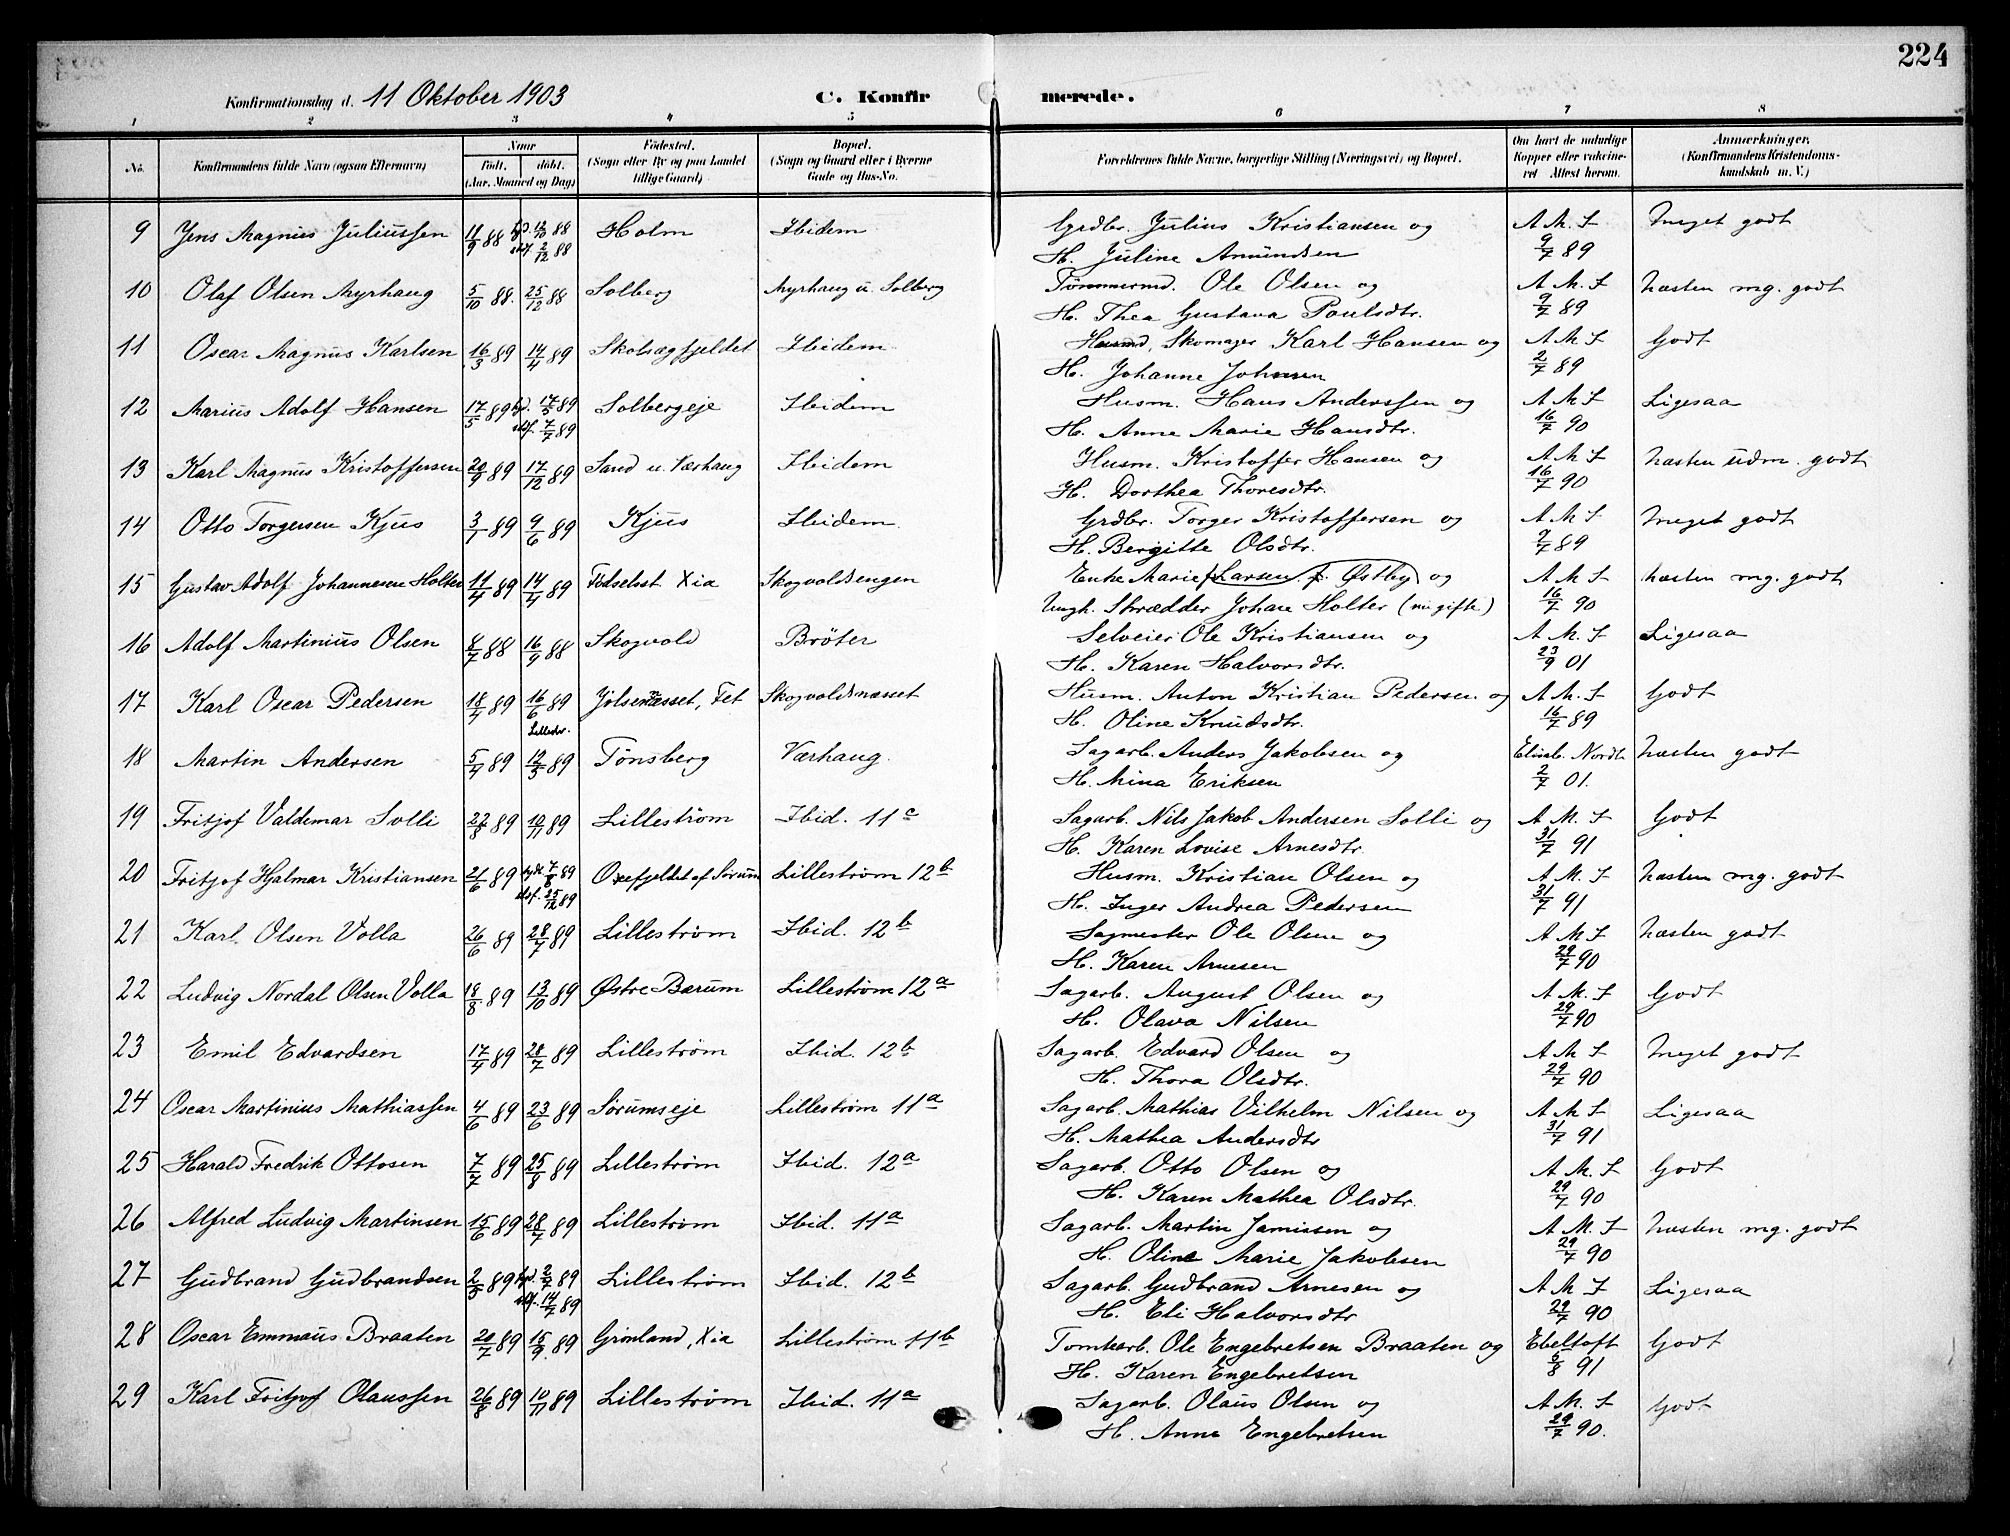 224
Konfirmationsdag d. 11 Oktober 1903 C. Konfirmerede.
1 2 3 4 5 6 7 8
No. Konfirmandens fulde Navn (ogsaa Efternavn) Naar født. døbt. (Aar, Maaned og Dag) Fødested. (Sogn eller By og paa Landet tillige Gaard) Bopæl. (Sogn og Gaard eller i Byerne Gade og Hus-No. Forældrenes fulde Navne, borgerlige Stilling (Næringsvei) og Bopæl. Om havt de naturlige Kopper eller vaccineret Attest herom. Anmærkninger. (Konfirmandens Kristendomskundskab m. V.)
9 Jens Magnus Juliussen 11/9 88 hd. 12/10 88 Holm Ibidem Grdbr. Julius Kristiansen og A. M. S Meget godt
stf. 2/12 88 H. Juline Amundsen 9/7 89
10 Olaf Olsen Myrhaug 5/10 88. 25/12 88 Solberg Myrhaug u. Solberg Tømmermd. Ole Olsen og A. M. S Næsten mg. godt
H. Thea Gustava Paulsdtr. 9/7 89
11 Oscar Magnus Karlsen 16/3 89 14/4 89 Ibidem Husmd, Skomager Karl Hansen og A. M. S Godt
H. Johanne Johnsen 2/7 89
12 Marius Adolf Hansen 17/5 89 hd. 17/5 89 Solbergeje Ibidem Husm. Hans Anderssen og A. M. S Ligesaa
stf. 7/7 89 H. Anne Marie Hansdtr. 16/7 90
13 Karl Magnus Kristoffersen 20/9 89 17/12 89 Sand u. Værhaug Ibidem Husm. Kristoffer Hansen og A. M. S Næsten udm. godt
H. Dorthea Thoresdtr. 16/7 90
14 Otto Torgersen Kjus 3/1 89 9/6 89 Kjus Ibidem Grdbr. Torger Kristoffersen og A. M. S Meget godt
H. Bergitte Olsdtr. 2/7 89
15 Gustav Adolf Johannesen Holter 11/4 89 14/4 89 Fødselsst. Xia Skogvoldsengen Enke Marie Larsen f. Østby og A. M. S Næsten mg. godt
Ungk. Skrædder Johan Holter (nu gifte) 16/7 90
16 Adolf Martinius Olsen 8/7 88 16/9 88 Skogvold Brøter Selveier Ole Kristiansen og A. M. S Ligesaa
H. Karen Halvorsdtr. 23/9 01
17 Karl Oscar Pedersen 18/4 89 16/6 89 Jølsennæsset, Fet Skogvoldsnæsset Husm. Anton Kristian Pedersen og A. M. S Godt
Lillestr. H. Oline Knudsdtr. 16/7 89
18 Martin Andersen 5/4 89 12/5 89 Tønsberg Værhaug. Sagarb. Anders Jakobsen og Elisab. Nordt Næsten godt
H. Mina Eriksen 2/7 01.
19 Fritjof Valdemar Solli 22/8 89 10/11 89 Lillestrøm Ibid. 11c Sagarb. Nils Jakob Andersen Solli og A. M. S Godt
H. Karen Lovise Arnesdtr. 31/7 91
20 Fritjof Hjalmar Kristiansen 21/6 89 7/8 89 Oxefjeldet af Sørum Lillestrøm 12b Husm. Kristian Olsen og A. M. S Næsten mg. godt
stf. 25/12 89 H. Inger Andrea Pedersen 31/7 91
21 Karl Olsen Volla 26/6 89 28/7 89 Lillestrøm Ibid. 12b Sagmester Ole Olsen og A. M. S Næsten godt
H. Karen Arnesen 29/7 90
22 Ludvig Nordal Olsen Volla 18/8 89 13/10 89 Østre Bærum Lillestrøm 12a Sagarb. August Olsen og A. M. S Godt
H. Olava Nilsen 29/7 90
23 Emil Edvardsen 17/4 89 28/7 89 Lillestrøm Ibid. 12b Sagarb. Edvard Olsen og A. M. S Meget godt
H. Thora Olsdtr. 29/7 90
24 Oscar Martinius Mathiassen 4/6 89 23/6 89 Sørumseje Lillestrøm 11a Sagarb. Mathias Vilhelm Nilsen og A. M. S Ligesaa
H. Mathea Andersdtr 31/7 91
25 Harald Fredrik Ottosen 7/7 89 25/8 89 Lillestrøm Ibid. 12a Sagarb. Otto Olsen og A. M. S Godt
H. Karen Mathea Olsdtr. 29/7 90
26 Alfred Ludvig Martinsen 15/6 89 28/7 89 Lillestrøm Ibid. 11a Sagarb. Martin Jamissen og A. M. S Næsten mg. godt
H. Oline Marie Jakobsen 29/7 90
27 Gudbrand Gudbrandsen 2/5 89 hd. 2/7 89 Lillestrøm Ibid. 12b Sagarb. Gudbrand Arnesen og A. M. S Ligesaa
stf. 14/7 89 H. Eli Halvorsdtr 29/7 90
28 Oscar Emmaus Braaten 20/7 89 15/9. 89 Grønland, Xia Lillestrøm 11b Tomtearb. Ole Engebretsen Braaten og Ebeltoft Godt
H. Karen Engebretsen 6/8 91
29 Karl Fritjof Olaussen 26/8 89 10/11 89 Lillestrøm Ibid. 11a Sagarb. Olaus Olsen og A. M. S Godt
H. Anna Engebretsen 29/7 90.